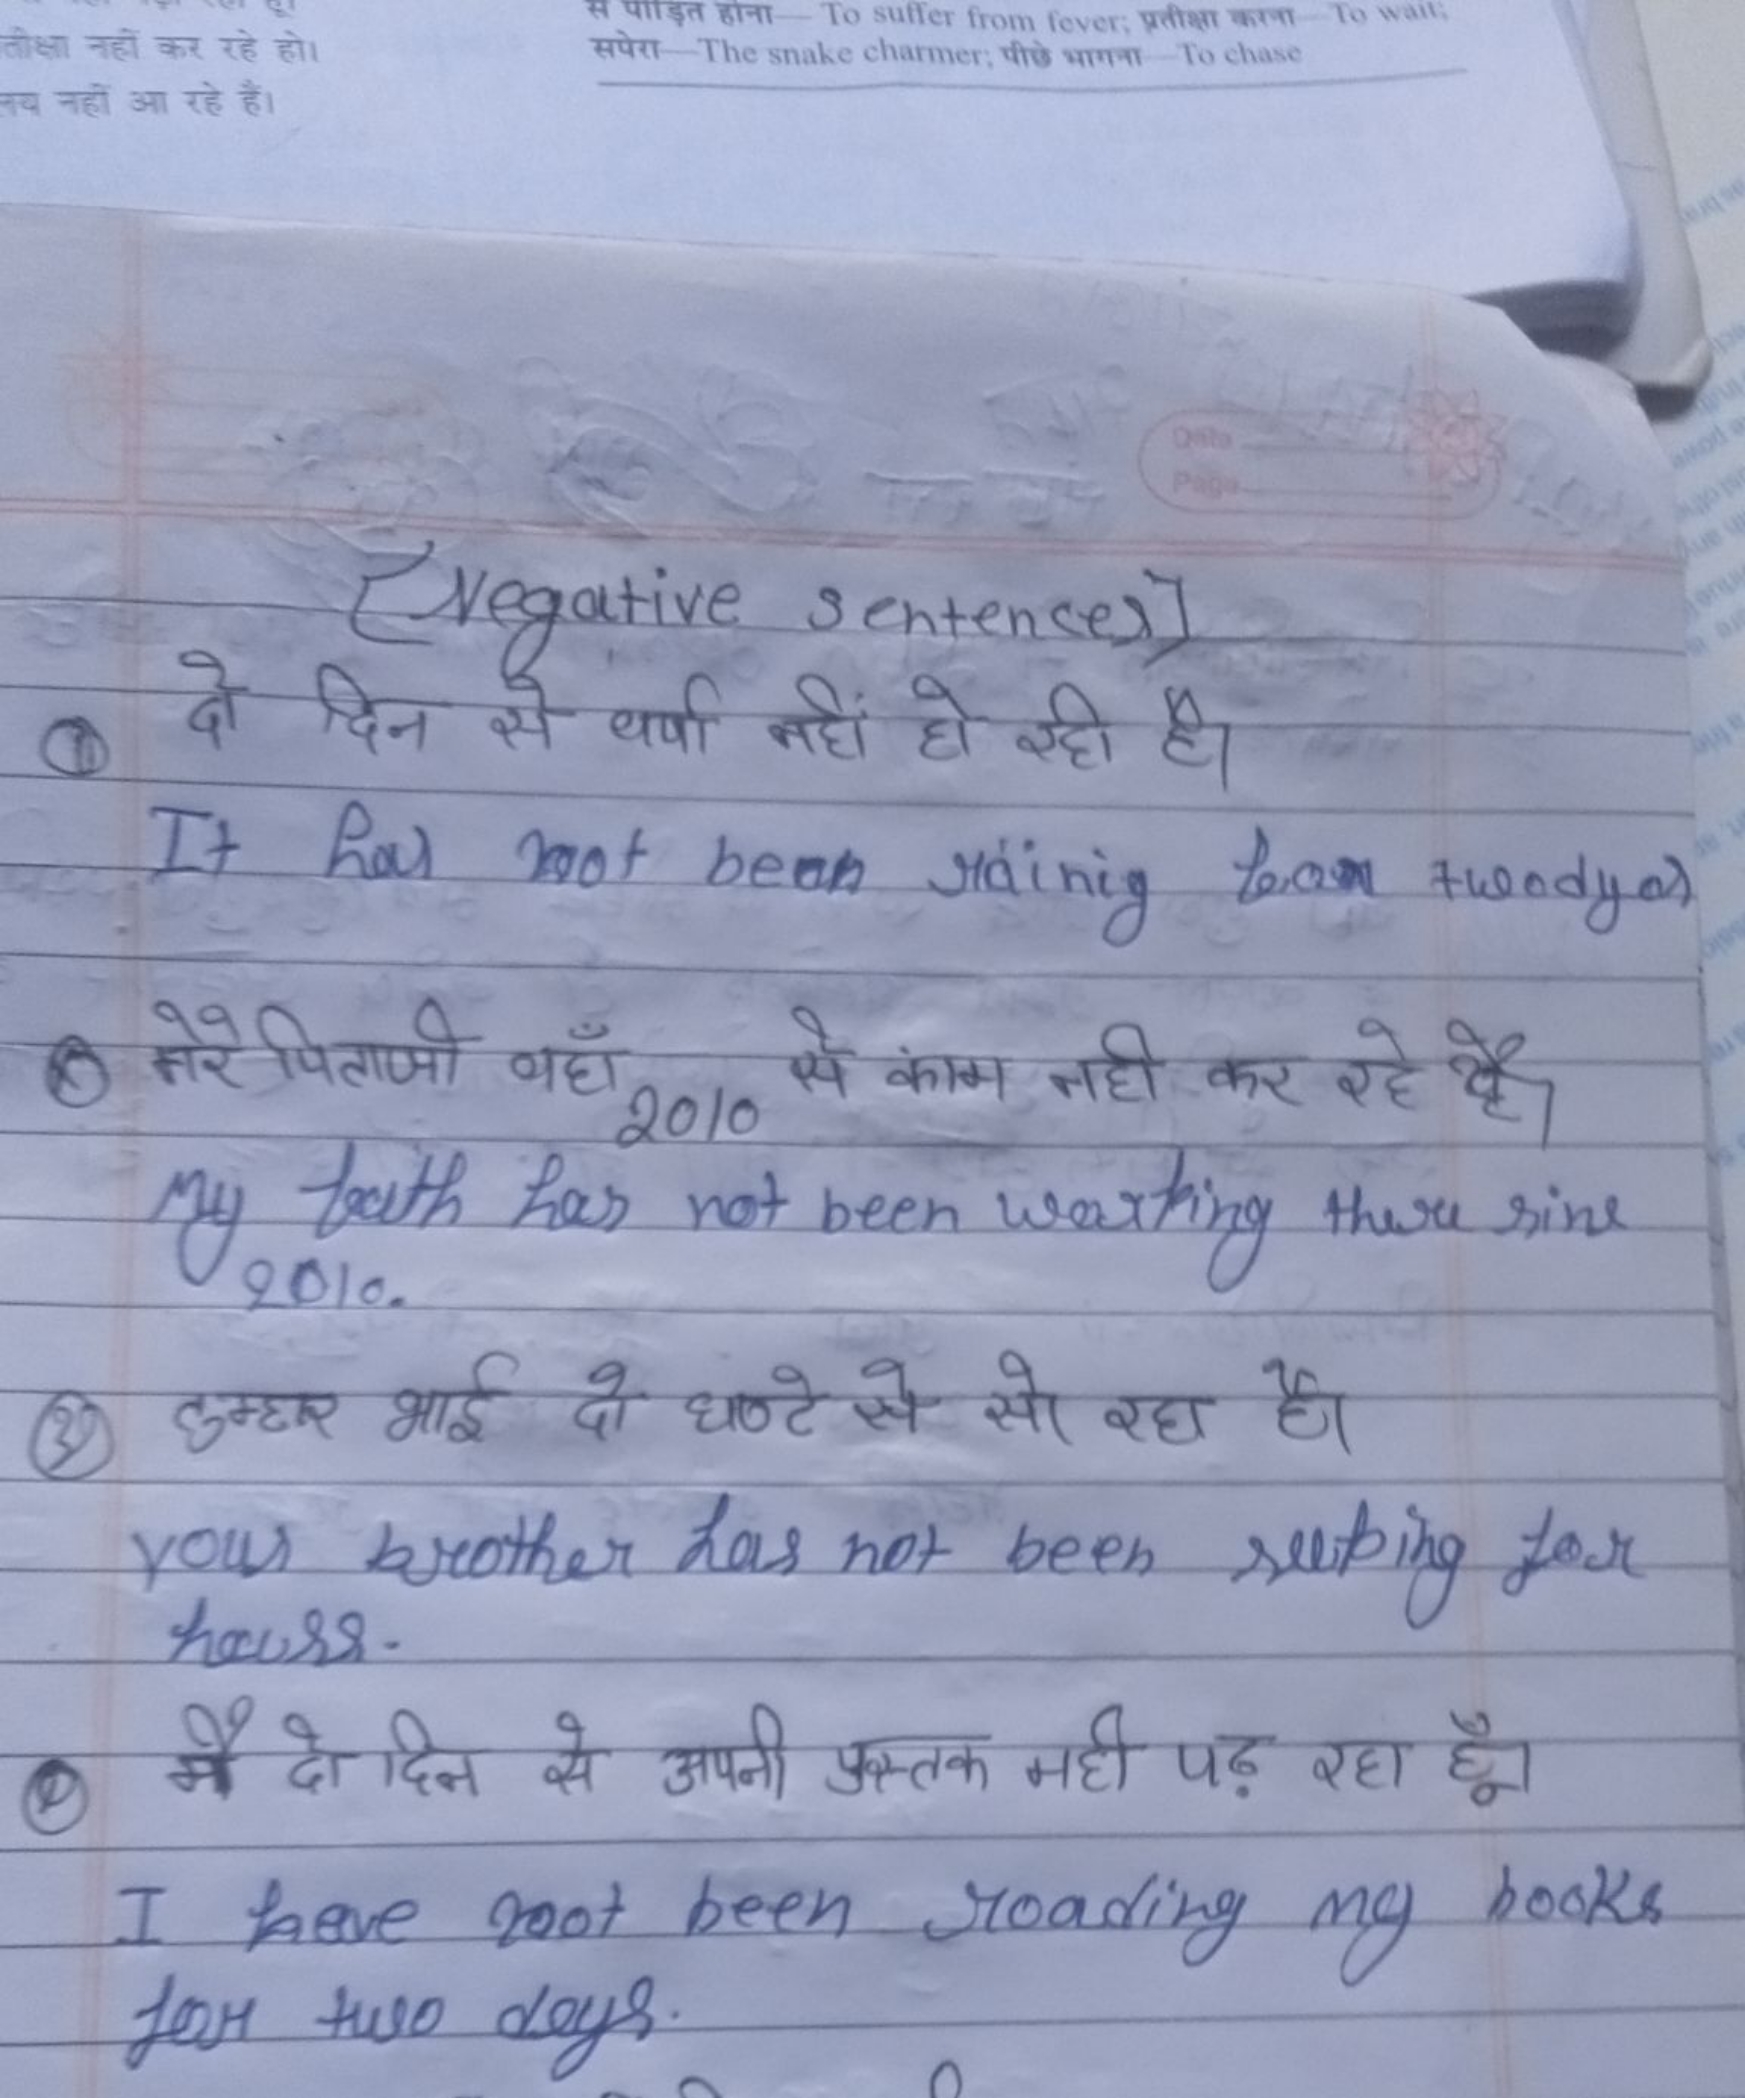 से पीड़ित होना— To suffer from fever; प्रतीक्षा करना—To wait;
तीक्षा नहीं कर रहे हो।
सपेरा—The snake charmer; पीछे भागना—To chase
नहीं आ रहे हैं।
Date
Page
[Negative sentences]
① दो दिन से वर्षा नहीं हो रही है।
It has not been rainig twodyas
मेरे पिताजी यहाँ 2010 से काम नही कर रहे है।
My fauth has not been working there sine
2010.
③ तुम्हार भाई दो घण्टे से सो रहा है।
your brother has not been seeping for
hours.
मैं दो दिन से अपनी पुस्तक नही पढ़ रहा हूँ।
I have not been roading my books
for two days.